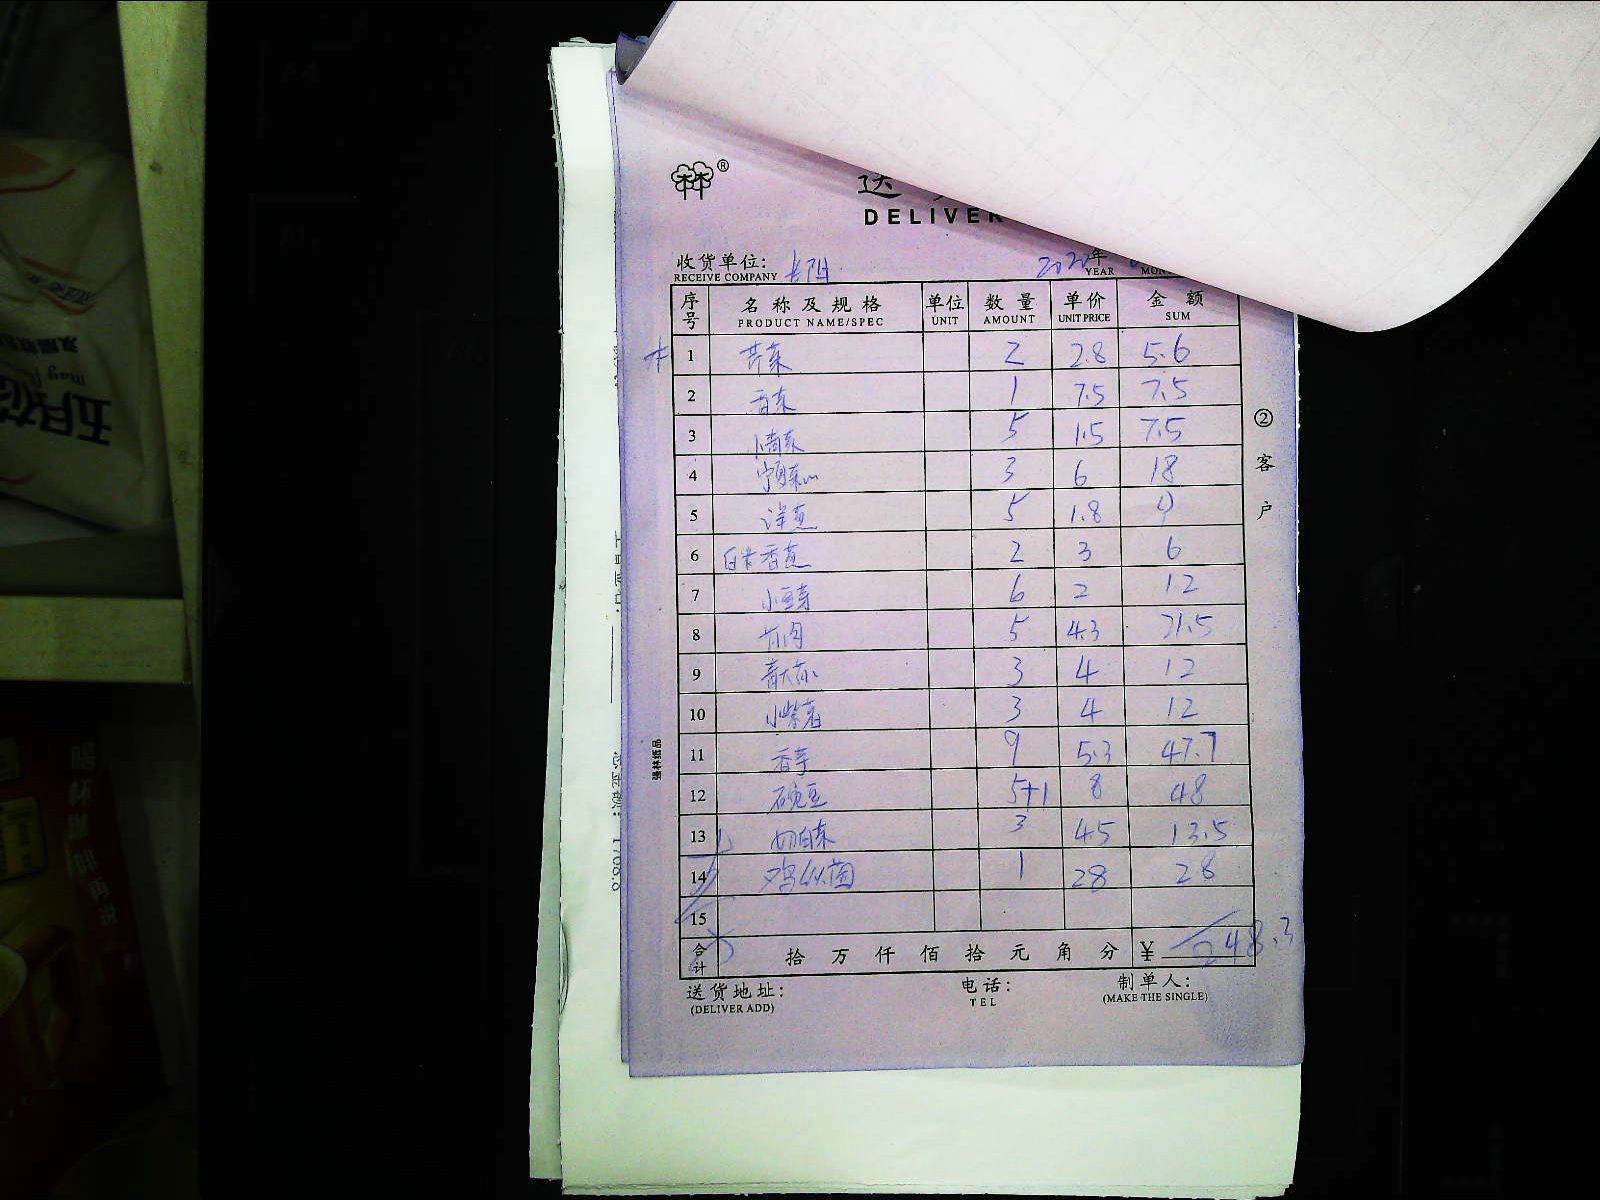 林®
送
DELIVER
收货单位:
RECEIVE COMPANY
2020年
YEAR
序号 名称及规格 单位 数量 单价 金额
PRODUCT NAME/SPEC UNIT AMOUNT UNIT PRICE SUM
1 芹菜 2 2.8 5.6
2 香菜 1 7.5 7.5
3 小青菜 5 1.5 7.5
4 3 6 18
5 洋葱 5 1.8 9
6 香葱 2 3 6
7 小豆芽 6 2 12
8 5 4.3 21.5
9 3 4 12
10 小紫茄 3 4 12
11 香芋 9 5.3 47.7
12 豌豆 5+1 8 48
13 切白菜 3 4.5 13.5
14 鸡纵菌 1 28 28
15
合计 拾万仟佰拾元角分 ¥ 248.3
送货地址:
(DELIVER ADD)
电话:
TEL
制单人:
(MAKE THE SINGLE)
②客户
强林纸品